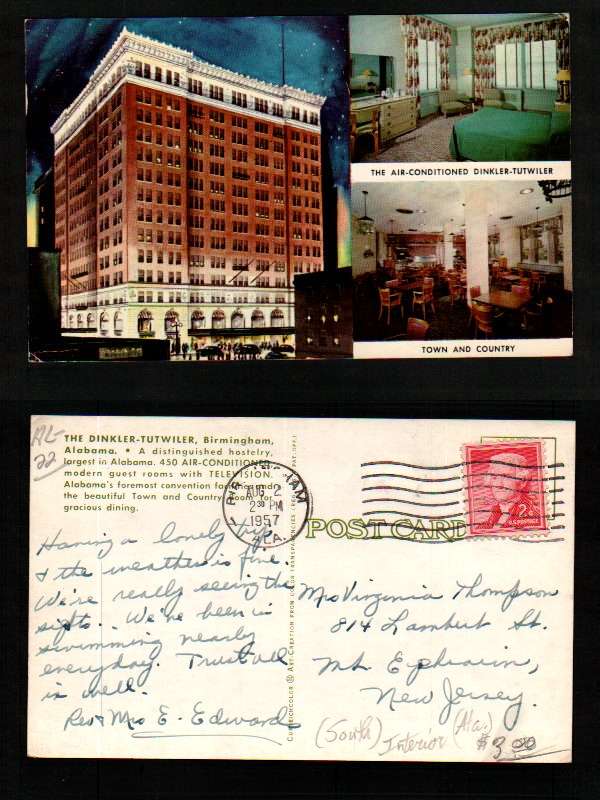 THE AIR-CONDITIONED DINKLER-TUTWILER
TOWN AND COUNTRY
AL-
22
THE DINKLER-TUTWILER, Birmingham,
Alabama. • A distinguished hostelry,
largest in Alabama. 450 AIR-CONDITIONED
modern guest rooms with TELEVISION.
Alabama's foremost convention facilities and
the beautiful Town and Country Room for
gracious dining.
Having a lonely
& the weather is fine.
We're really seeing the
sights. We've been in
swimming nearly
everyday. Trust all
is well.
Rev & Mrs E. Edwards
BIRMINGHAM
AUG 2
2 30 PM
1957
ALA.
CURTEICHCOLOR ® ART-CREATION FROM COLOR TRANSPARENCIES
POST CARD
2¢
U.S. POSTAGE
Mrs Virginia Thompson
814 Lambert St.
Mt Ephraim,
New Jersey.
(South) Interior (Ala.)
$3.00